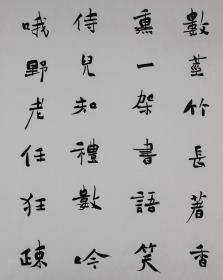 數莖竹長著香
熏一架書語笑
侍兒知禮數吟
哦野老任狂疎